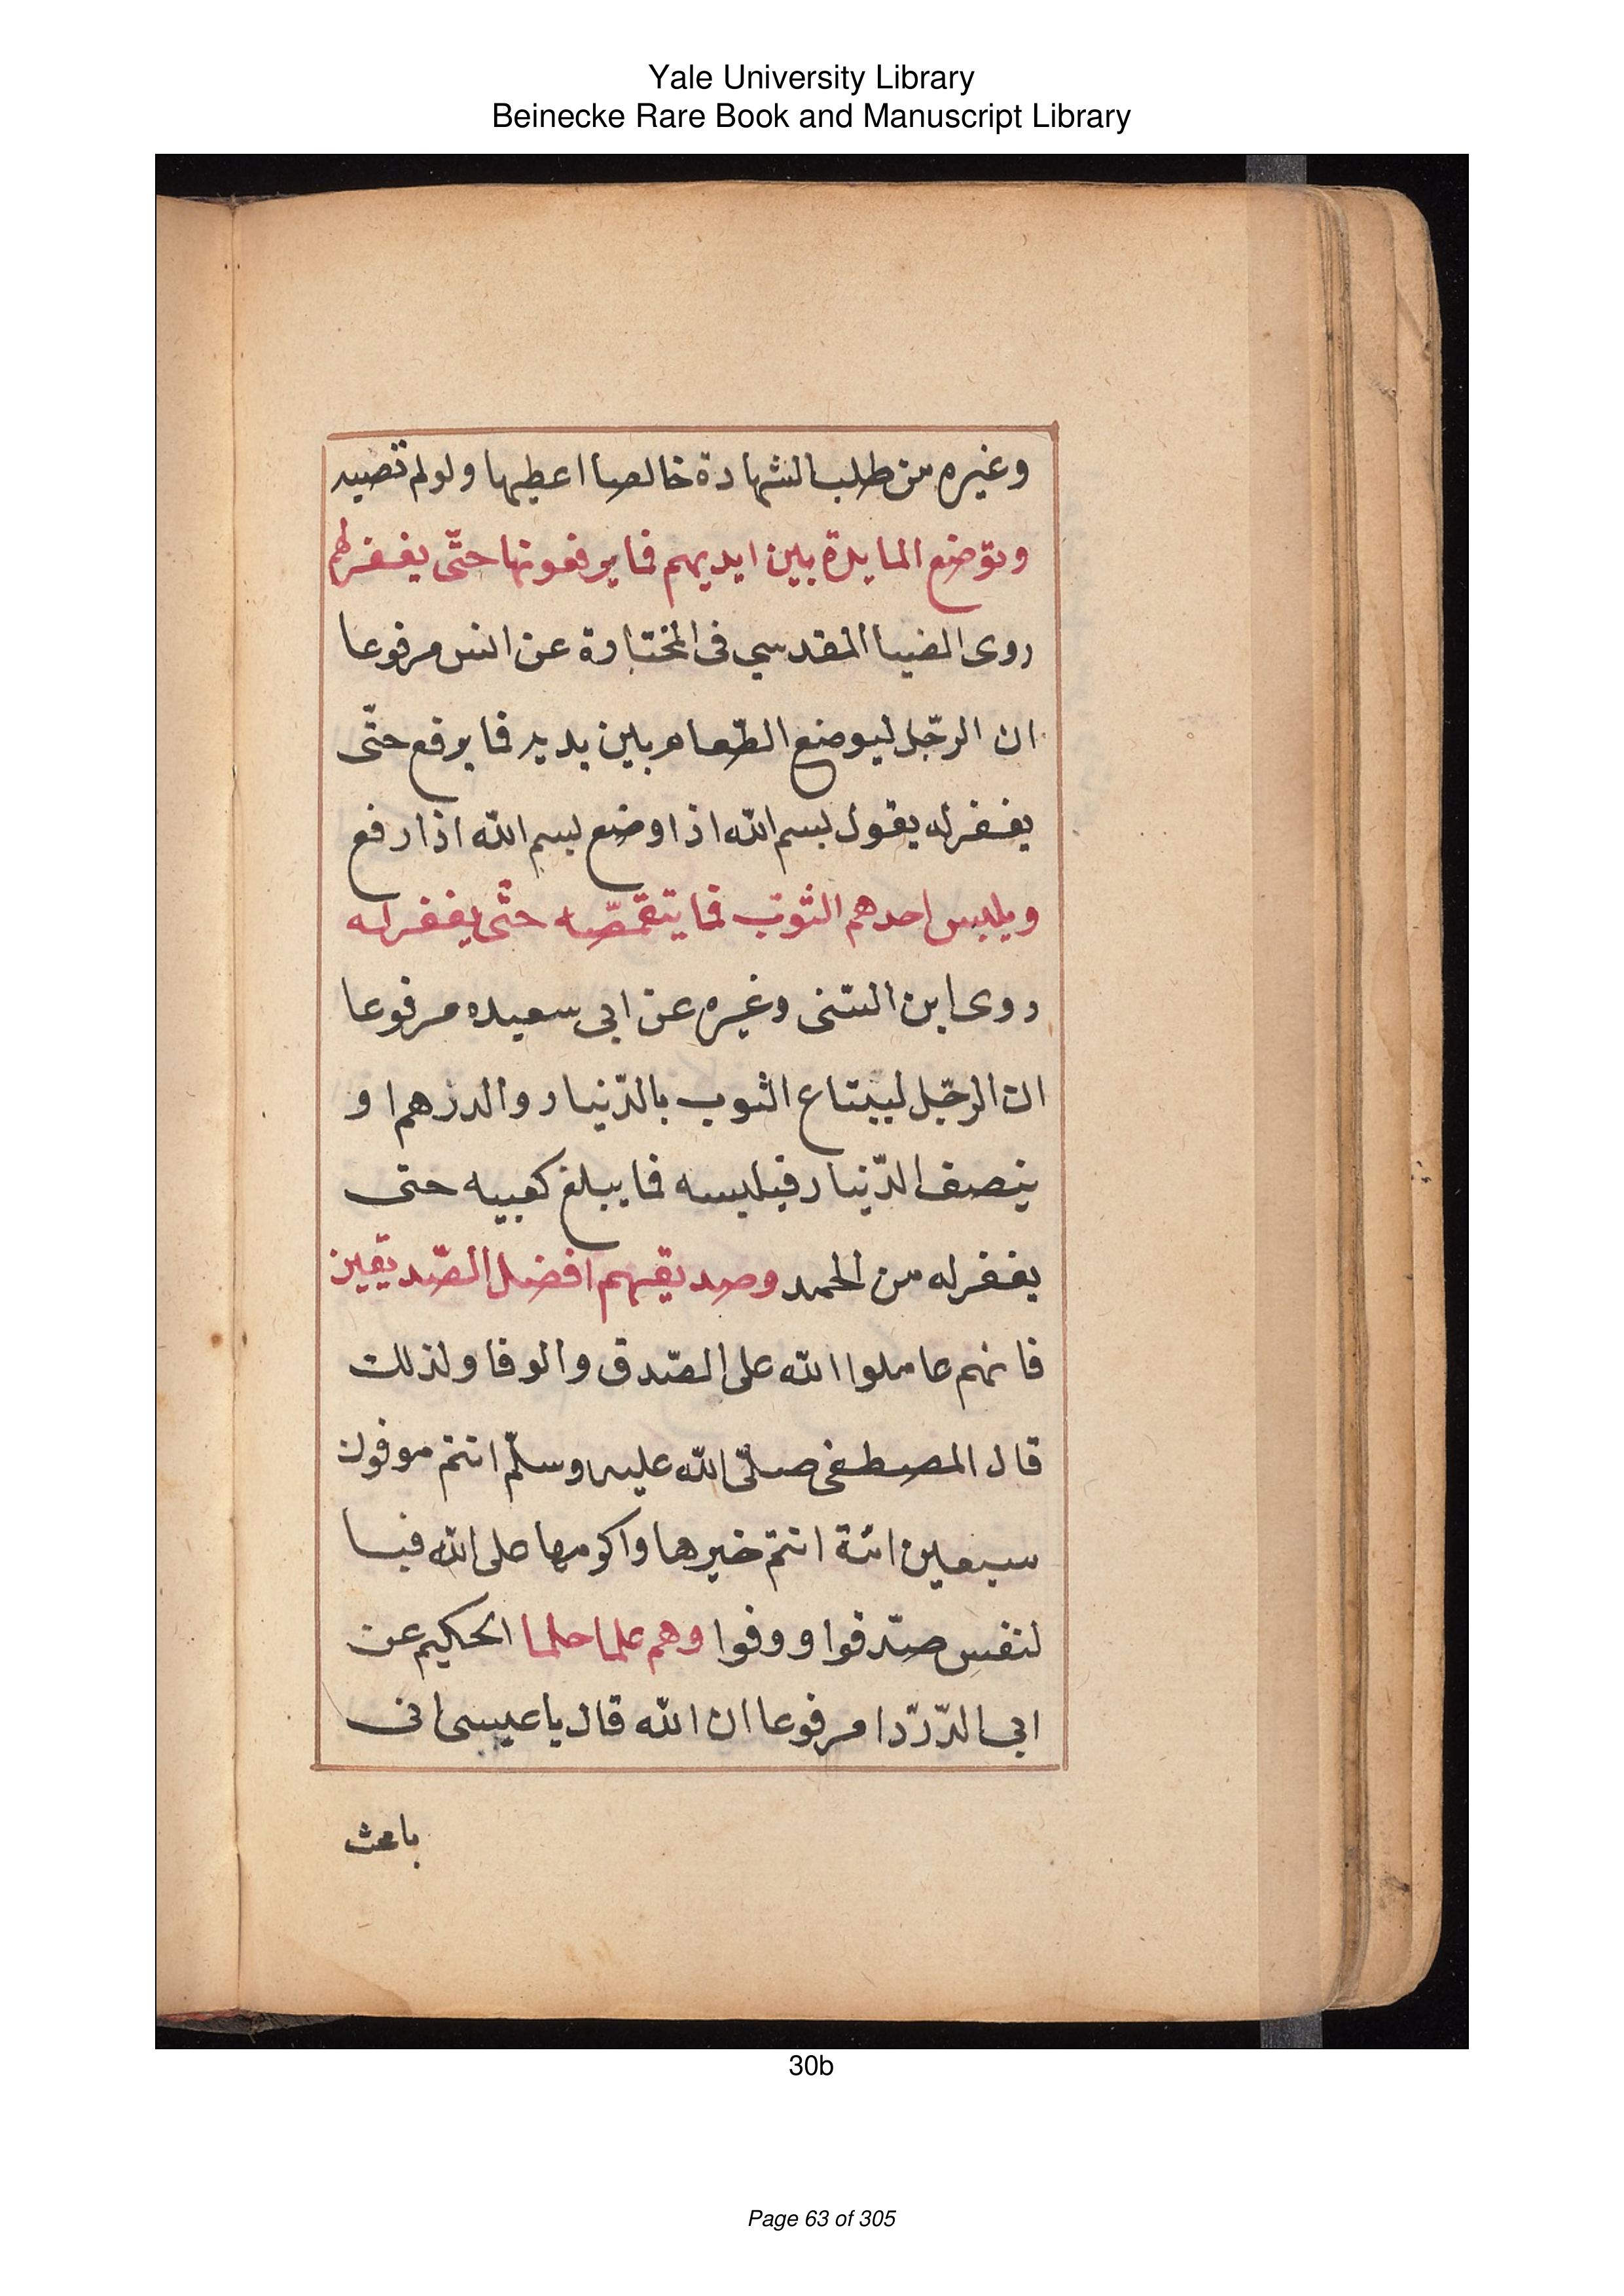 Yale University Library
Beinecke Rare Book and Manuscript Library
وغيره من طلب الشهادة خالصا اعطيها ولولم تصبه
وتوضع المايدة بين ايديهم فما يرفعونها حتّى يغفرلهم
روى الضيا المقدسي فى المختارة عن انس مرفوعا
ان الرجّل ليوضع الطّعام بين يديه فما يرفع حتّى
يغفرله يقول بسم الله اذا وضع بسم الله اذا رفع
ويلبس احدهم الثوب فما يتقمصّه حتّى يغفرله
روى ابن السّنى وغيره عن ابى سعيده مرفوعا
ان الرجّل ليبتاع الثوب بالدّنيار والدرهم او
بنصف الدّنيار فيلبسه فما يبلغ كعبيه حتى
يغفرله من الحمد وصديقهم افضل الصّديقين
فانهم عاملوا الله على الصّدق والوفا ولذلك
قال المصطفى صلّى الله عليه وسلّم انتم موفون
سبعين امّة انتم خيرها واكرمها على الله فيسا
لنفس صدّقوا ووفوا وهم علما حلما الحكيم عن
ابي الدّرّدا مرفوعا ان الله قال يا عيسى انى
باعث
30b
Page 63 of 305